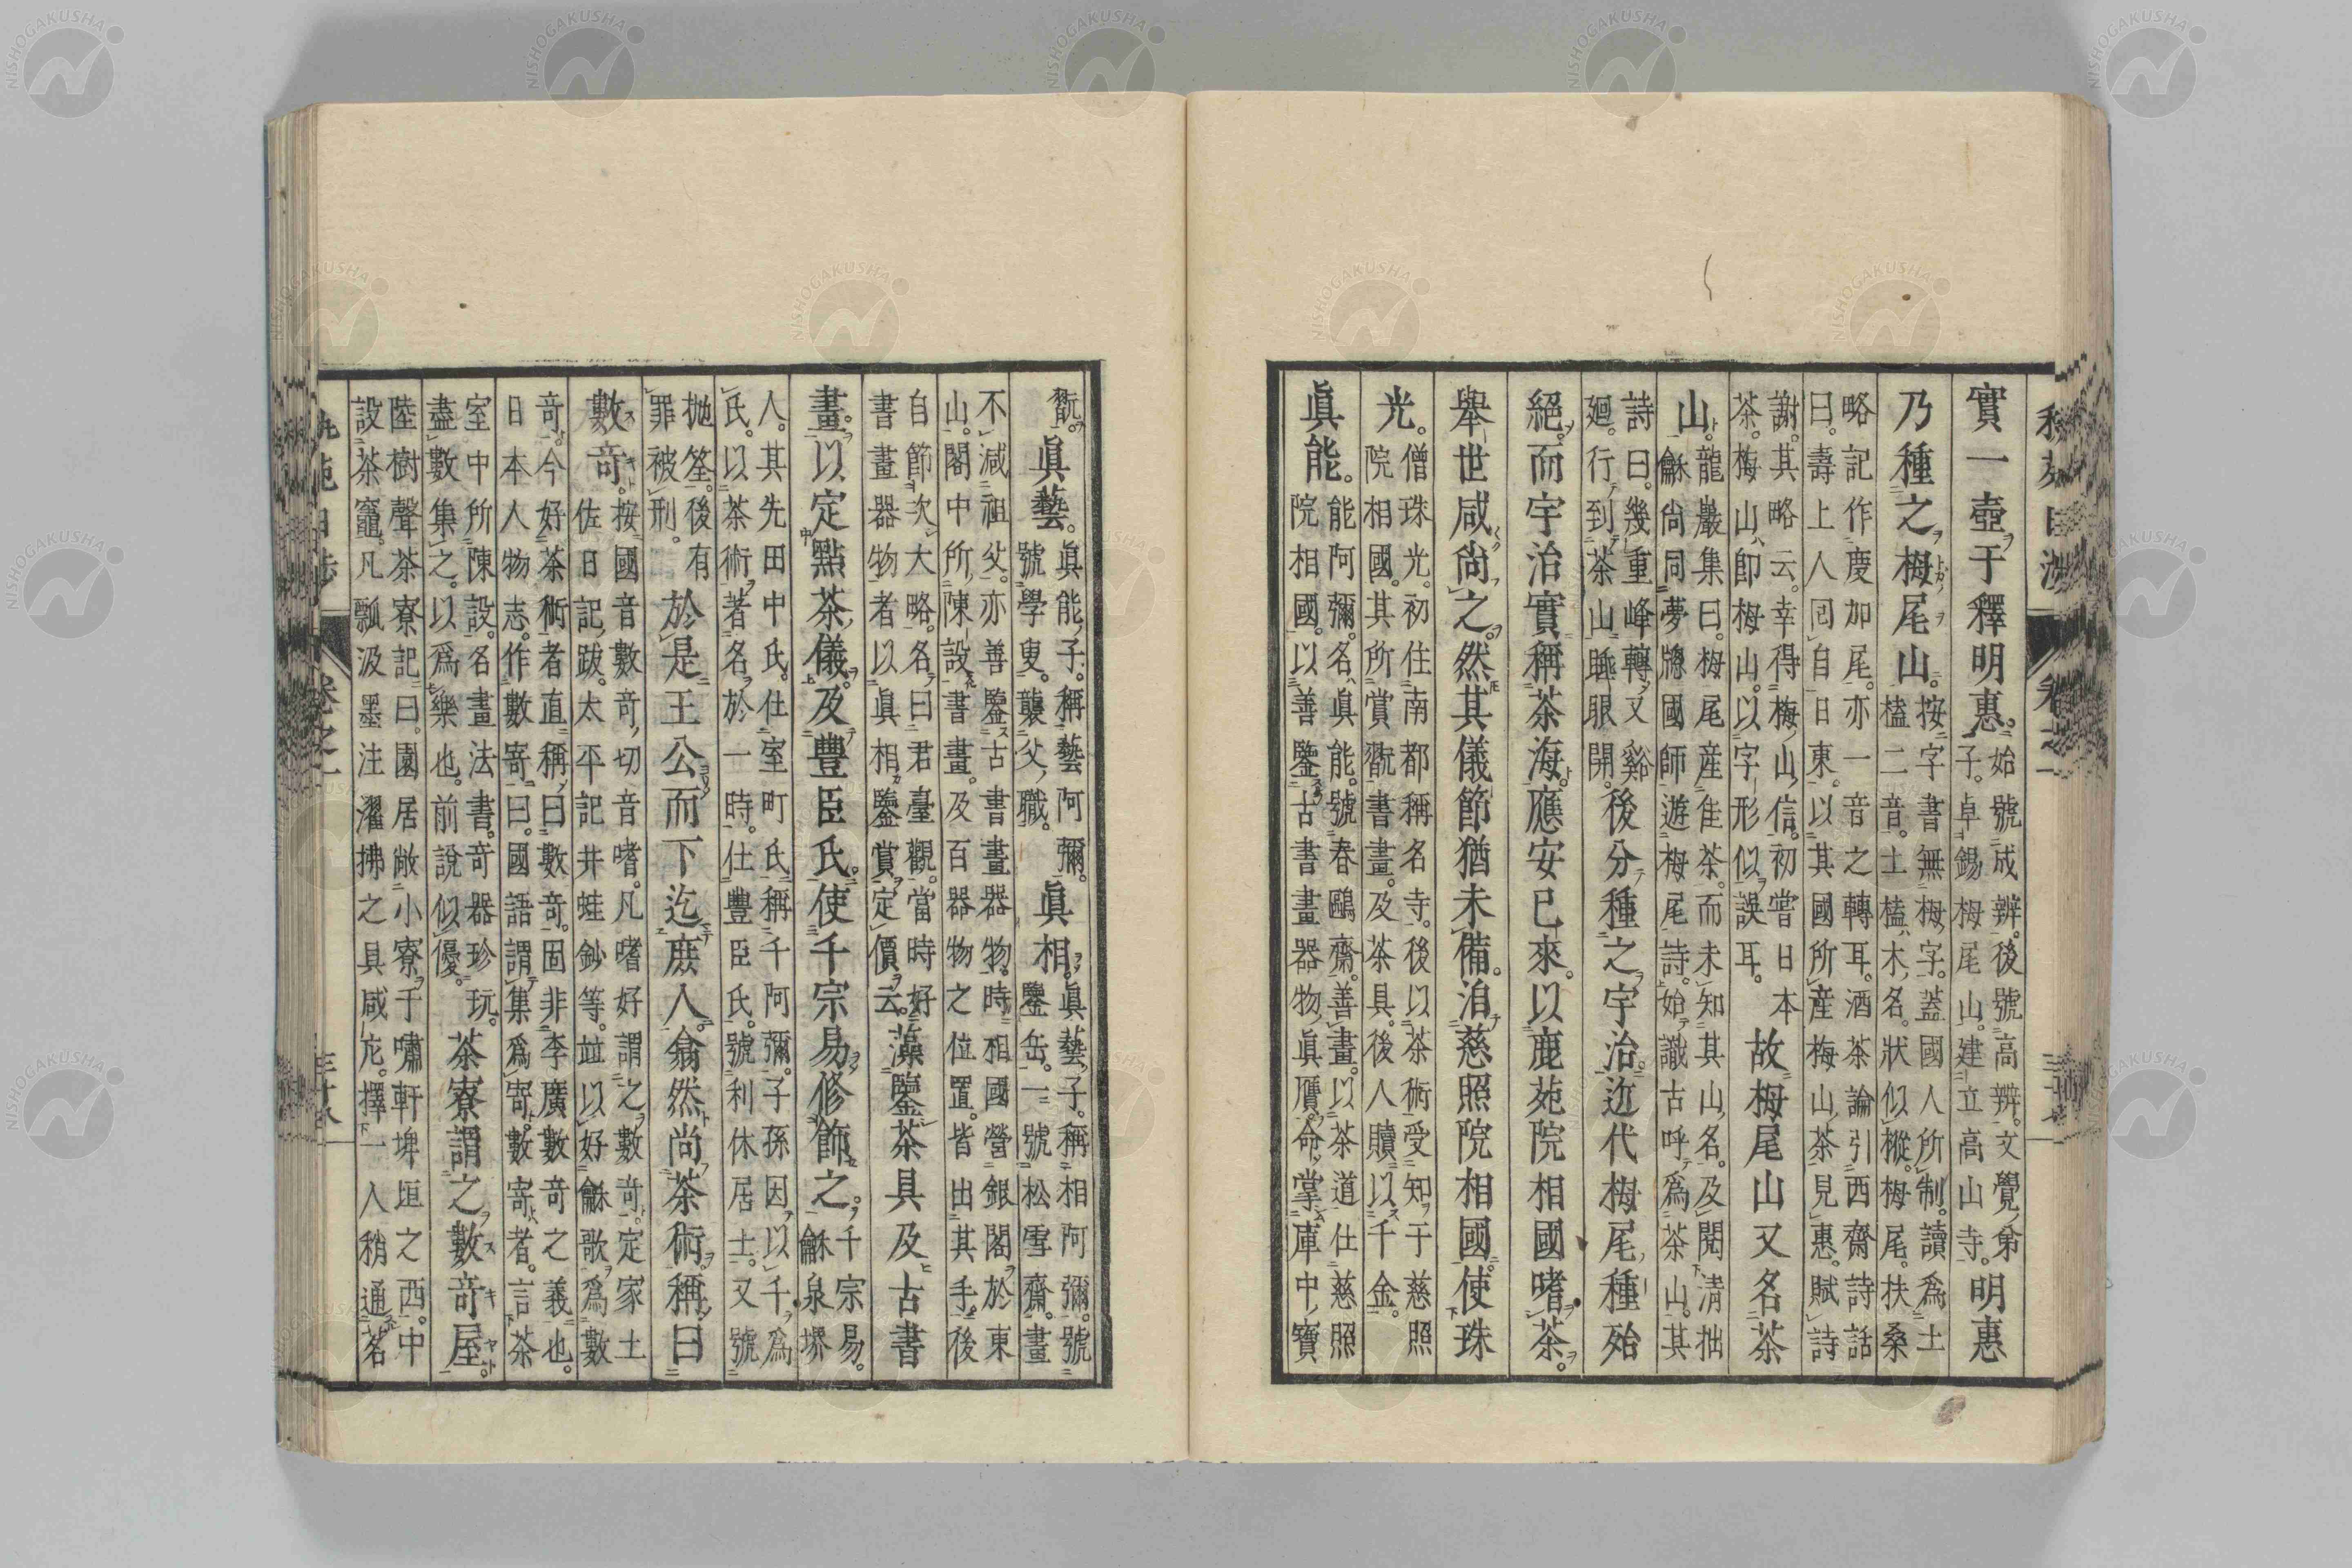 實一壺于釋明惠。始號成辨。後號高辨。文覺弟子。卓錫栂尾山。建立高山寺。明惠
乃種之栂尾山。按字書無栂字。蓋國人所制。讀爲土榼二音。土榼木名。狀似樅。栂尾。扶桑
略記作慶加尾。亦一音之轉耳。酒茶論引西齋詩話曰。壽上人回自日東。以其國所產梅山茶見惠。賦詩
謝。其略云。幸得梅山信。初嘗日本茶。梅山卽栂山。以字形似誤耳。故栂尾山又名茶
山。龍巖集曰。栂尾產佳茶。而未知其山名。及閱清拙龢尙同夢牕國師遊栂尾詩。始識古呼爲茶山。其
詩曰。幾重峰轉又谿廻。行到茶山睡眼開。後分種之宇治。近代栂尾種殆
絕。而宇治實稱茶海。應安已來。以鹿苑院相國嗜茶。
舉世咸尙之。然其儀節猶未備。洎慈照院相國。使珠
光。僧珠光。初住南都稱名寺。後以茶術受知于慈照院相國。其所賞翫書畫。及茶具。後人贖以千金。
眞能。能阿彌。名眞能。號春鷗齋。善畫。以茶道仕慈照院相國。以善鑒古書畫器物眞贋。命掌庫中寶
翫。眞藝。眞能子。稱藝阿彌。號學叟。襲父職。眞相。眞藝子。稱相阿彌。號鑒岳。一號松雪齋。畫
不減祖父。亦善鑒古書畫器物。時相國營銀閣於東山。閣中所陳設書畫。及百器物之位置。皆出其手。後
自節次大略。名曰君臺觀。當時好書畫器物者以眞相鑒賞定價云。藻鑒茶具及古書
畫。以定點茶儀。及豐臣氏。使千宗易修飾之。千宗易。龢泉堺
人。其先田中氏。仕室町氏稱千阿彌。子孫因以千爲氏。以茶術著名於一時。仕豐臣氏。號利休居士。又號
拋筌。後有罪被刑。於是王公而下迄庶人翕然尙茶術。稱曰
數奇。按國音數奇切音嗜。凡嗜好謂之數奇。定家土佐日記跋。太平記井蛙鈔等。竝以好龢歌爲數
奇。今好茶術者直稱曰數奇。固非李廣數奇之義也。日本人物志。作數寄曰。國語謂集爲寄。數寄者。言茶
室中所陳設。名畫法書。奇器珍玩。盡數集之。以爲樂也。前說似優。茶寮謂之數奇屋。
陸樹聲茶寮記曰。園居敞小寮于嘯軒埤垣之西。中設茶竈。凡瓢汲墨注濯拂之具咸庀。擇一人稍通茗
卷之一